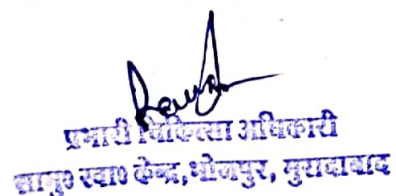 प्रभारी चिकित्सा अधिकारी
सामु० स्वा० केन्द्र, भोजपुर, मुरादाबाद